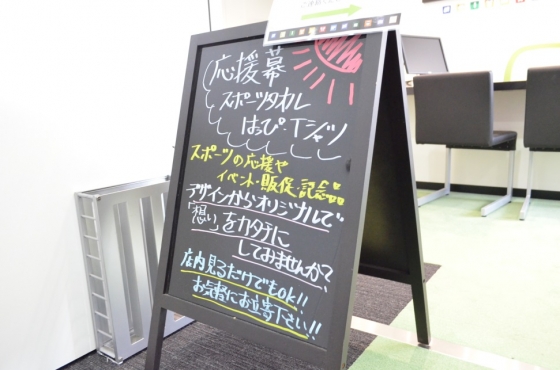 応援幕
スポーツタオル
はっぴ・Tシャツ
スポーツの応援や
イベント・販促・記念品
デザインからオリジナルで
「想い」をカタチに
しておませんか、
店内見るだけでもOK!!
お気軽にお立寄下さい!!